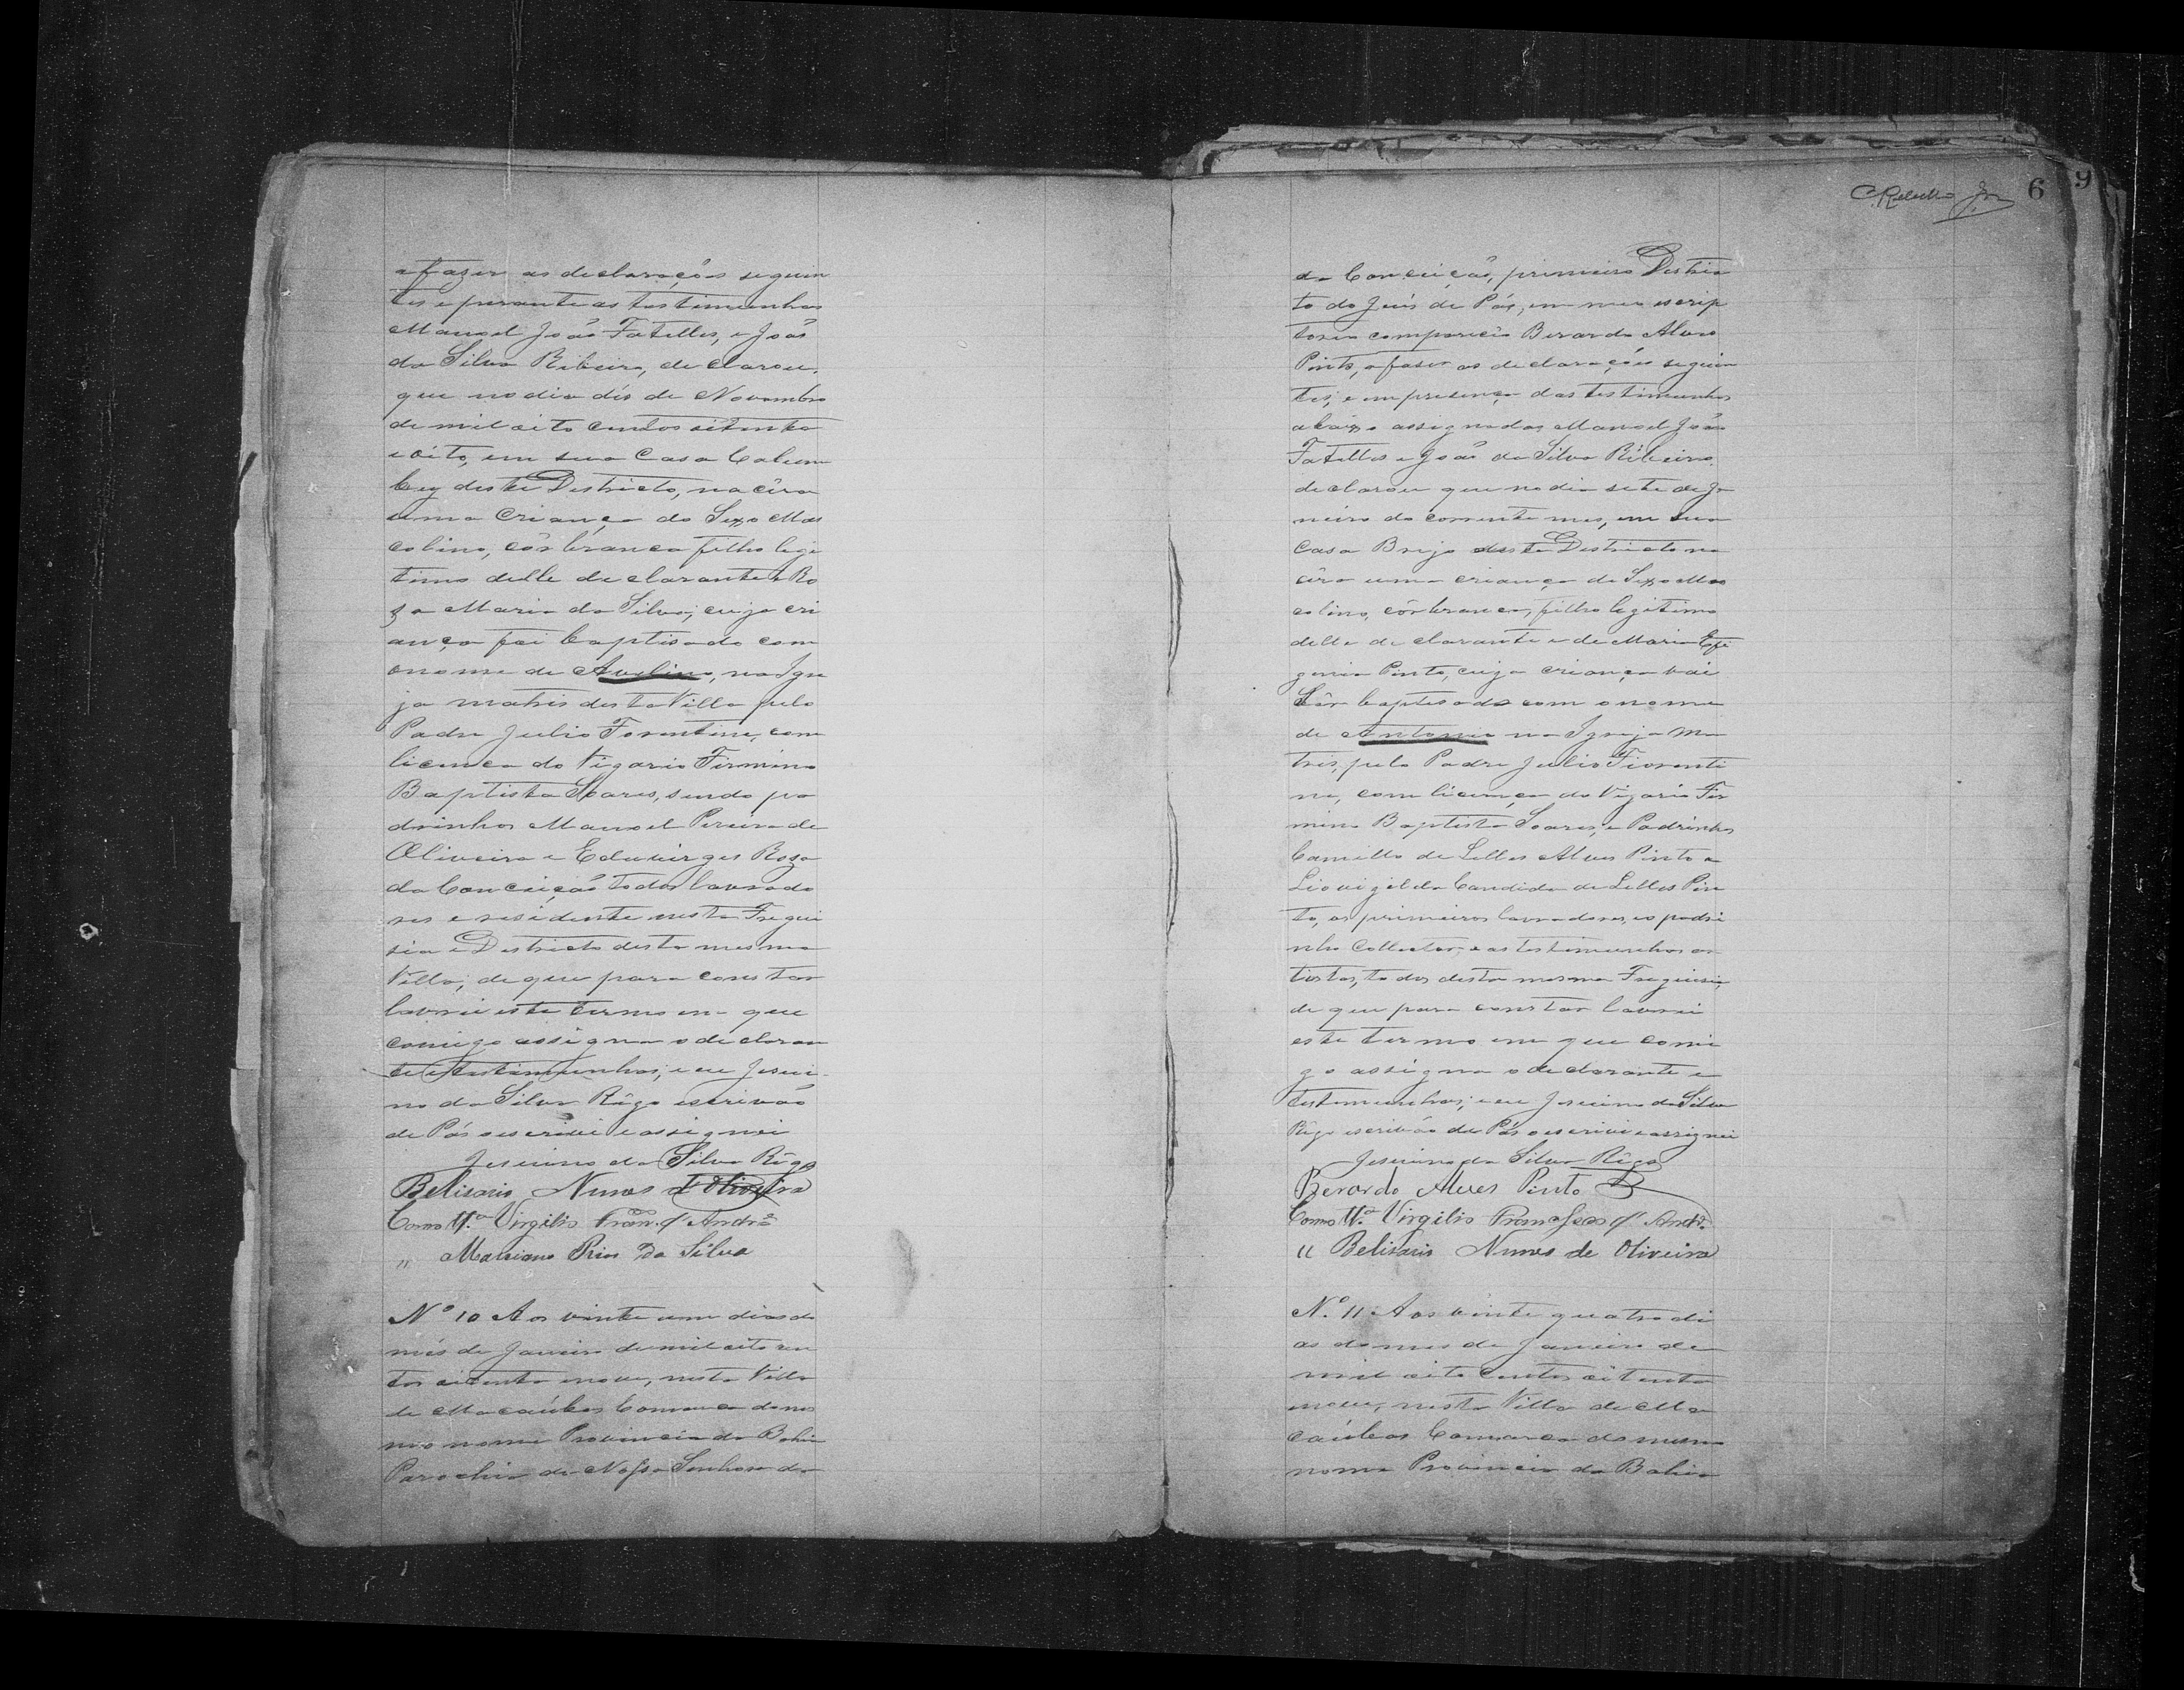 a fazer as declarações seguin
tes e perante as testimunhas
Manoel João Fatelles, e João
da Silva Ribeiro, declarou,
que no dia dés de Novembro
de mil oito centos oitenta
e oito, em sua Casa Calum
by deste Destricto, nacêra
uma Criança do Sexo Mas
colino, côr branca filho legi
timo delle declarante e Ro
za Maria da Silva; cuja cri
ança foi baptisada com
o nome de Avelino, na Igre
ja matris desta Villa pelo
Padre Julio Forentine, com
licença do Vigario Firmino
Baptista Soares, sendo pa
drinhos Manoel Pereira de
Oliveira e Eduvirges Roza
da Conceição todos lavrado
res e residente nesta Fregui
sia e Destricto desta mesma
Villa; de que para constar
lavrei este termo em que
comigo assigna o declaran
te e testimunhas; e eu Jesui
no da Silva Rêgo escrivão
de Pás o escrivi e assignei
Jesuino da Silva Rêgo
Belisario Nunes d'Oliveira
Como tt.ª Virgilio Fran.co d'Andr.e
" Marciano Prios da Silva
Nº 10 Aos vinte um dias do
més de Janeiro de mil oito cen
tos oitenta e nove, nesta Villa
de Macaúbas Comarca do mes
mo nome Provincia da Bahia
Parochia de Nossa Senhora da
C. Rabello Jor 6 9
da Conceição, primeiro Destric
to do Juis de Pás, em meu escrip
torio compareceu Berardo Alves
Pinto, a faser as declarações seguin
tes; e em presença das testimunhas
abaixo assignadas Manoel João
Fatelles e João da Silva Ribeiro,
declarou que no dia sete de Ja
neiro do corrente mes, em sua
Casa Brejo deste Destricto na
cêra uma criança de Sexo Mas
colino, côr branca, filho legitimo
delle declarante e de Maria Efi
genia Pinto, cuja criança vai
Sêr baptisada com o nome
de Antonio na Igreja Ma
tris, pelo Padre Julio Fiorenti
ne, com licença do Vigario Fir
mino Baptista Soares, e Padrinhos
Camillo de Lelles Alves Pinto e
Liovigilda Candida de Lelles Pin
to, os primeiros lavradores, e o padri
nho Collector, e as testimunhas ar
tistas, todos desta mesma Freguisia,
de que para constar lavrei
este termo em que comi
go assigna o declarante e
testemunhas; e eu Jesuino da Silva
Rêgo escrivão de Pás o escrivi e assignei
Jesuino da Silva Rêgo
Berardo Alves Pinto
Como tt.ª Virgilio Francisco d'Andr.e
" Belisario Nunes de Oliveira
N.º 11 Aos vinte quatro di
as do mes de Janeiro de
mil oito centos oitenta
e nove, nesta Villa de Ma
caúbas Comarca do mesmo
nome Provincia da Bahia